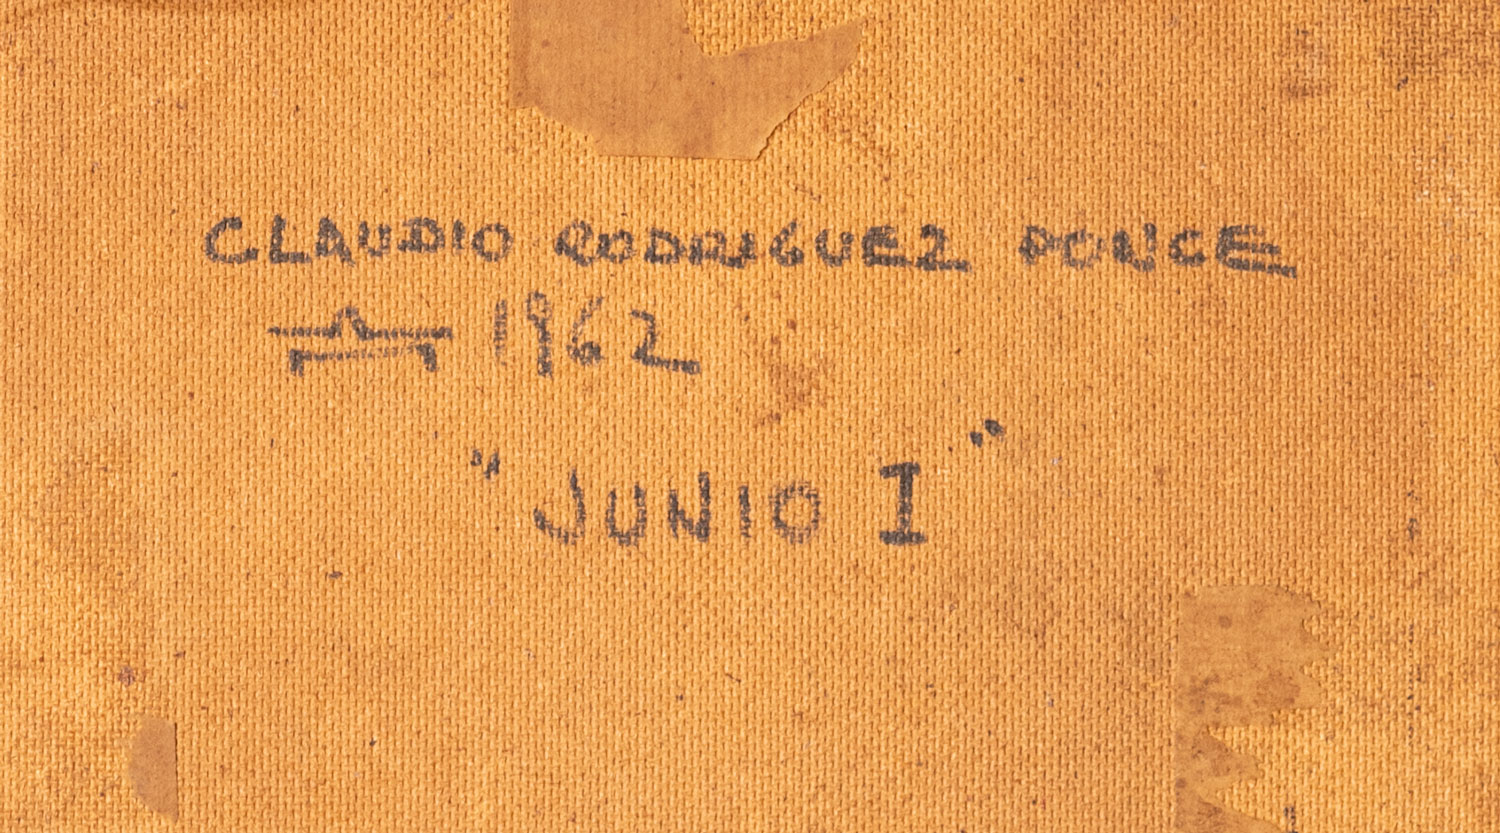 CLAUDIO RODRIGUEZ PONCE
1962
"JUNIO I"